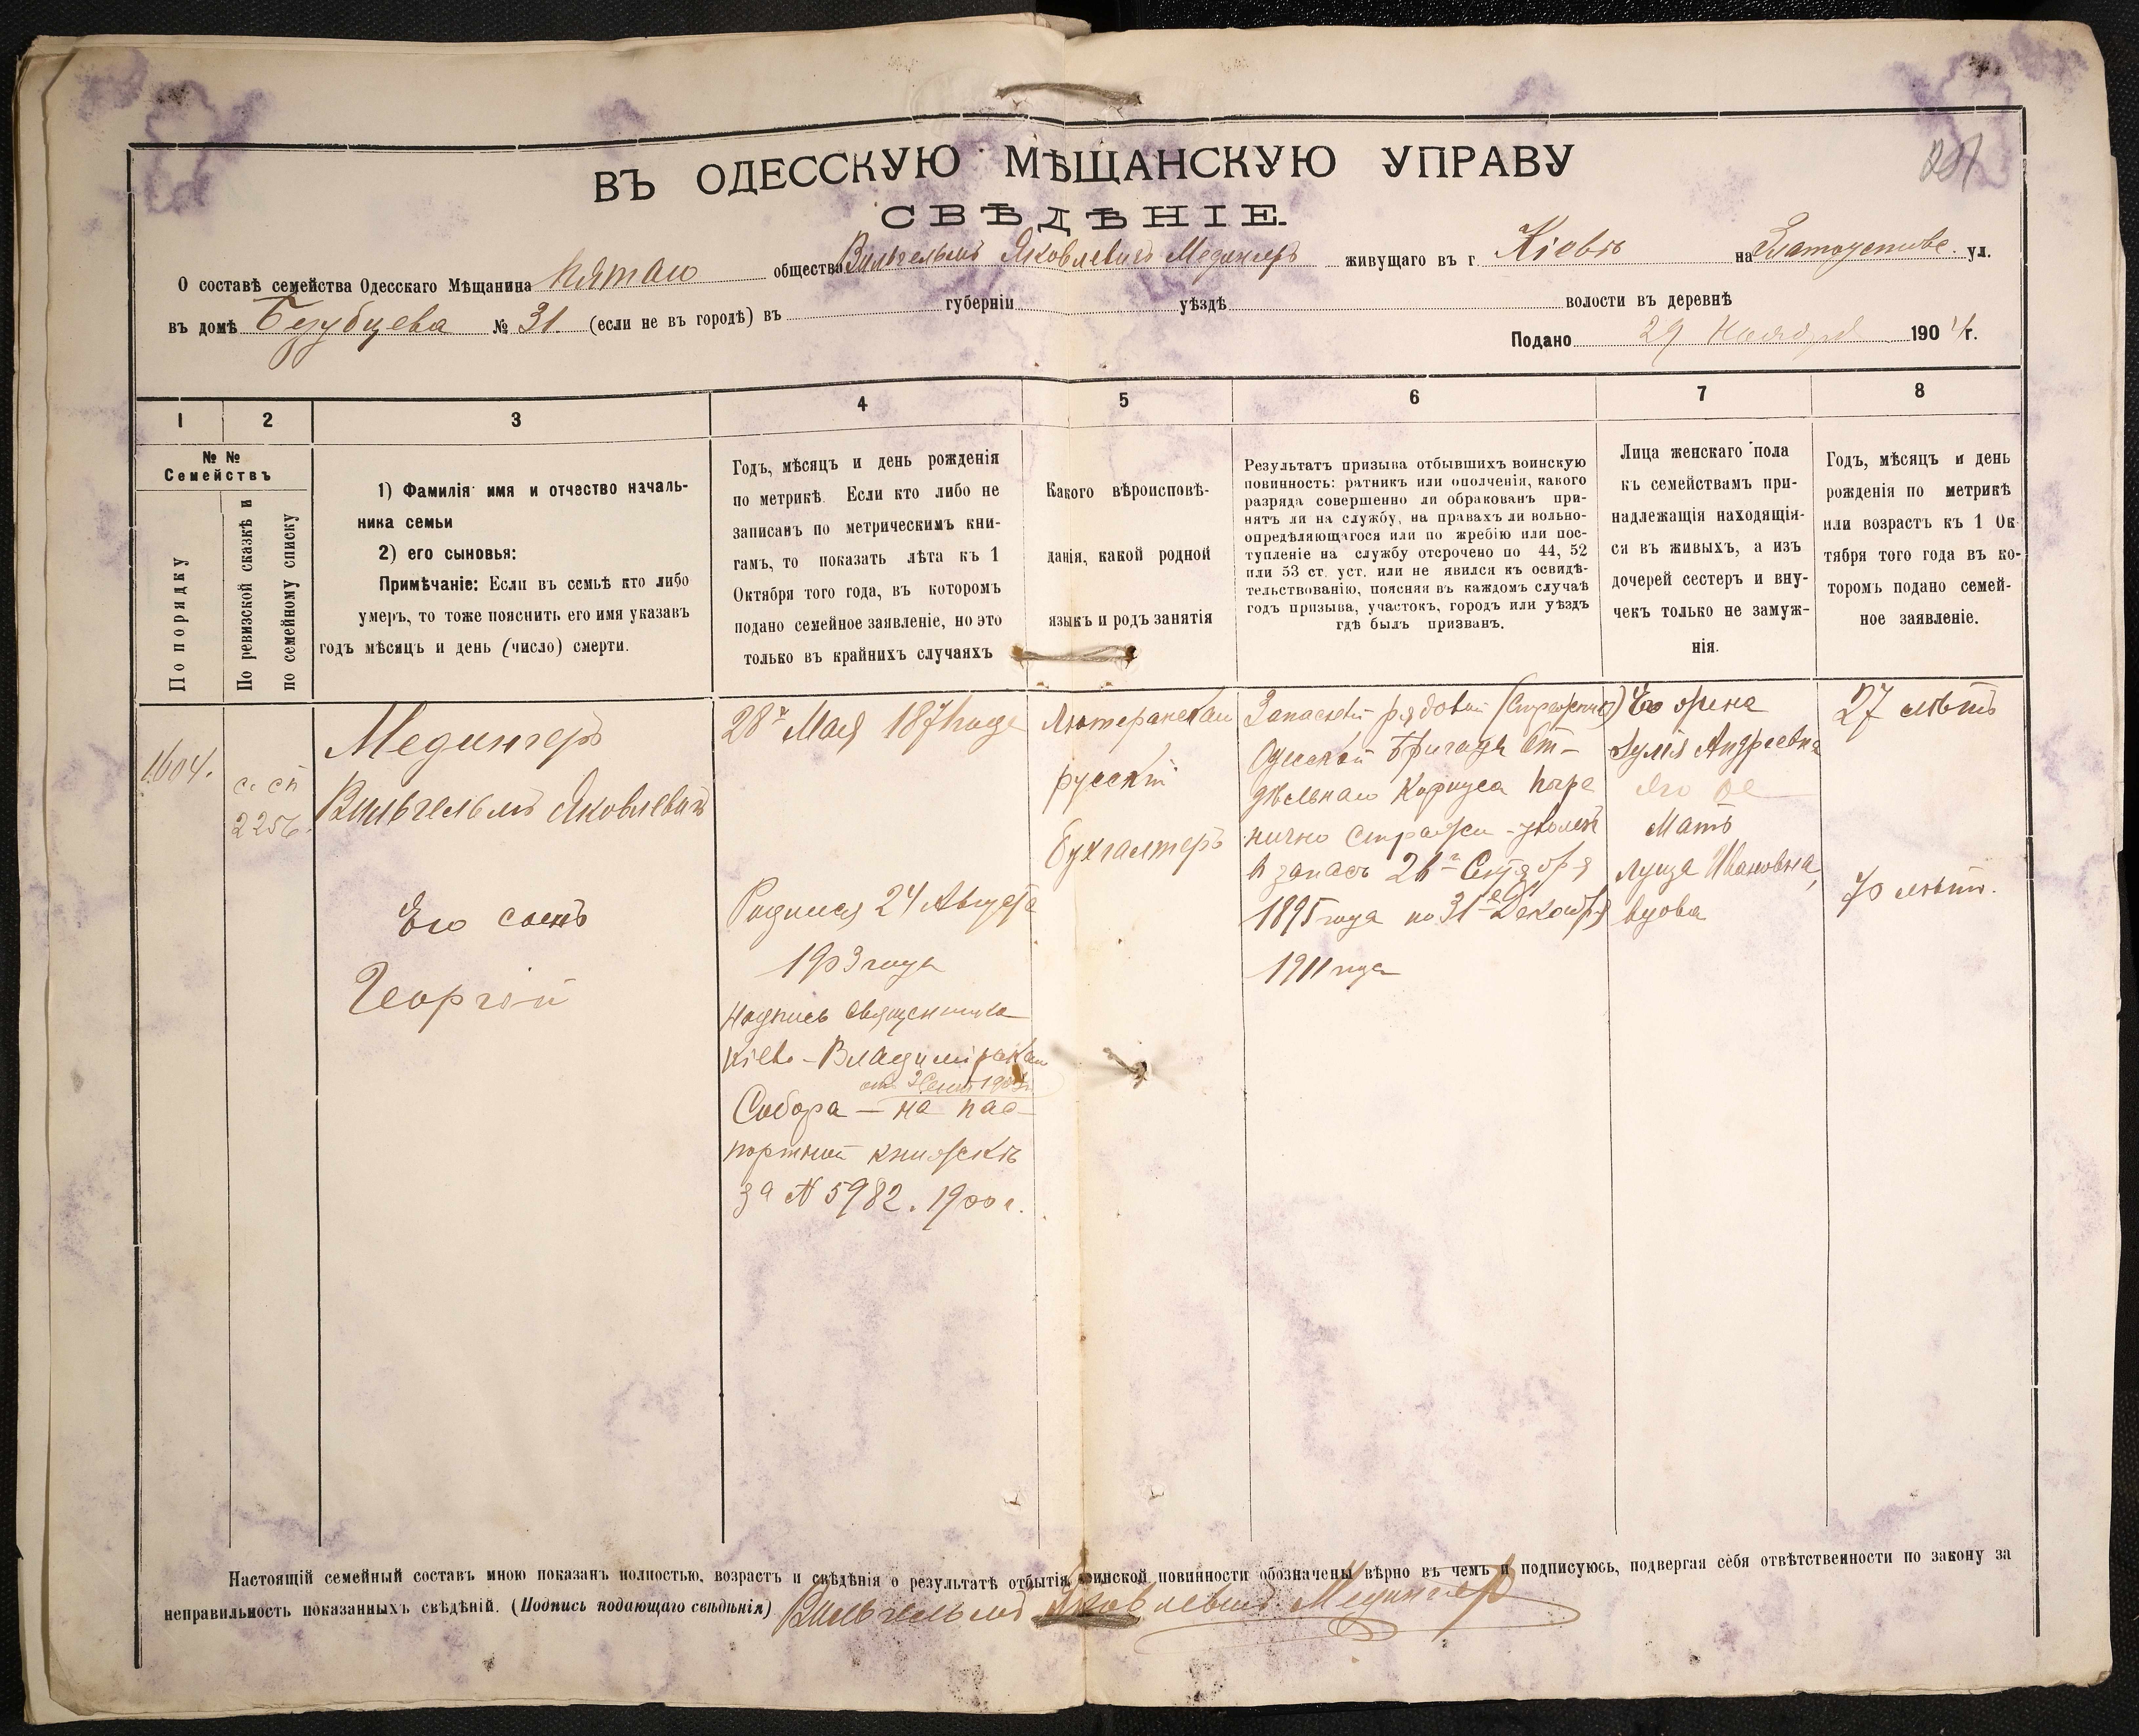 ВЪ ОДЕССКУЮ МѢЩАНСКУЮ УПРАВУ
СВѢДѢНІЕ.
О составѣ семейства Одесскаго Мѣщанина пятаго общества Вильгельмъ Яковлевичъ Медингеръ живущаго въ г. Кіевѣ на Златоустов. ул.
въ домѣ Безубцева № 31. (если не въ городѣ) въ губерніи уѣздѣ волости въ деревнѣ
Подано 29 Ноября 1904 г.
1 2 3 4 5 6 7 8
№ №
Семействъ
По порядку
По ревизской сказкѣ и
по семейному списку
1) Фамилія имя и отчество началь-
ника семьи
2) его сыновья:
Примѣчаніе: Если въ семьѣ кто либо
умеръ, то тоже пояснить его имя указавъ
годъ мѣсяцъ и день (число) смерти.
Годъ, мѣсяцъ и день рожденія
по метрикѣ. Если кто либо не
записанъ по метрическимъ кни-
гамъ, то показать лѣта къ 1
Октября того года, въ которомъ
подано семейное заявленіе, но это
только въ крайнихъ случаяхъ
Какого вѣроисповѣ-
данія, какой родной
языкъ и родъ занятія
Результатъ призыва отбывшихъ воинскую
повинность: ратникъ или ополченія, какого
разряда совершенно ли обракованъ при-
нятъ ли на службу, на правахъ ли вольно-
опредѣляющагося или по жребію или пос-
тупленіе на службу отсрочено по 44, 52
или 53 ст. уст. или не явился къ освидѣ-
тельствованію, поясняя въ каждомъ случаѣ
годъ призыва, участокъ, городъ или уѣздъ
гдѣ былъ призванъ.
Лица женскаго пола
къ семействамъ при-
надлежащія находящія-
ся въ живыхъ, а изъ
дочерей сестеръ и вну-
чекъ только не замуж-
нія.
Годъ, мѣсяцъ и день
рожденія по метрикѣ
или возрастъ къ 1 Ок-
тября того года въ ко-
торомъ подано семей-
ное заявленіе.
1604.
с. сп
2256.
Медингеръ
Вильгельмъ Яковлевичъ
Его сынъ
Георгій
28го Мая 1871 года
Родился 24 Августа
1903 года
надпись священника
Кіево-Владимірскаго
от 2 Сент 1903 г.
Собора — на пас-
портной книжкѣ
за № 5982. 1900 г.
Лютеранскаго
русскій
бухгалтеръ
Запасный рядовой
Одесской бригады От-
дѣльнаго Корпуса погра
нично стражи - уволен
в запасъ 26го Сентября
1895 года по 31е Декабря
1911 года
Его жена
Юлія Андреевна
Его
Мать
Луиза Ивановна,
вдова
27 лѣтъ
70 лѣтъ.
Настоящій семейный составъ мною показанъ полностью, возрастъ и свѣдѣнія о результатѣ отбытія воинской повинности обозначены вѣрно въ чемъ и подписуюсь, подвергая себя отвѣтственности по закону за
неправильность показанныхъ свѣдѣній. (Подпись подающаго свѣдѣнія) Вильгельмъ Яковлевичъ Медингеръ